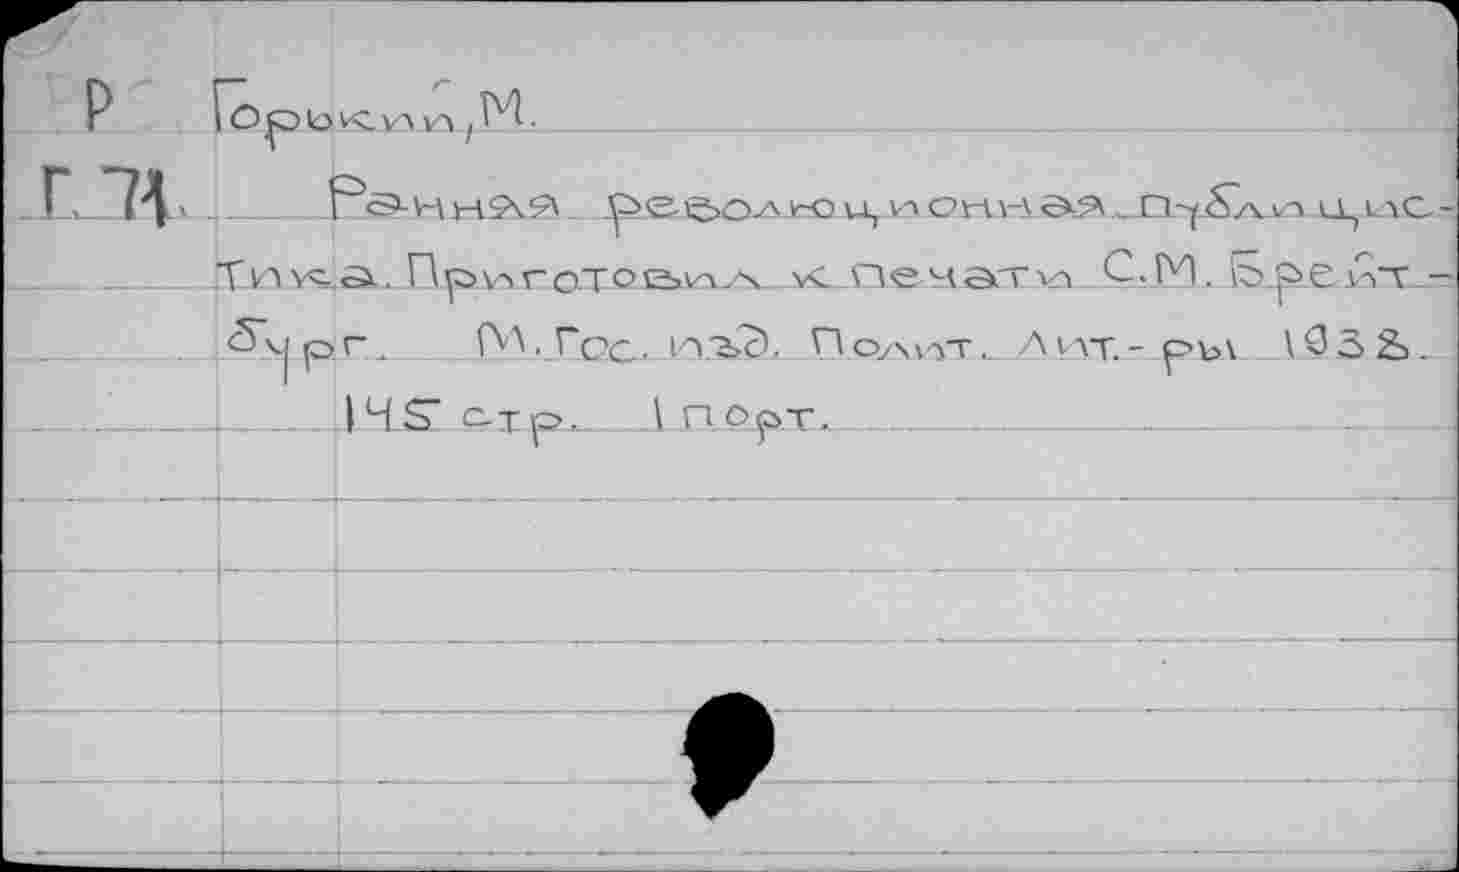 Р Горький, М.
Г. 74. Ранняя революционная публицис-
тика. Приготовил к печати С.М. Брейт-
бург. М. Гос. изд. Полит. Лит.-ры 1938.
145 стр. 1 порт.